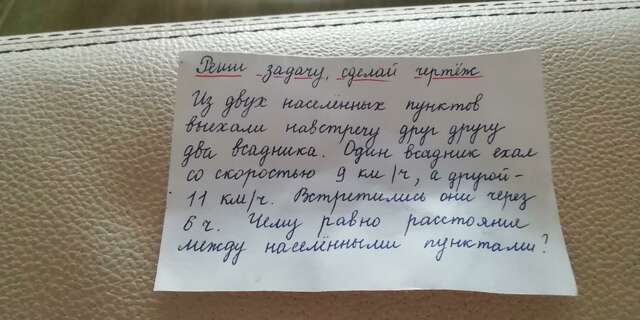 Реши задачу, сделай чертёж
Из двух населённых пунктов
выехали навстречу друг другу
два всадника. Один всадник ехал
со скоростью 9 км/ч, а другой-
11 км/ч. Встретились они через
6 ч. Чему равно расстояние
между населёнными пунктами?